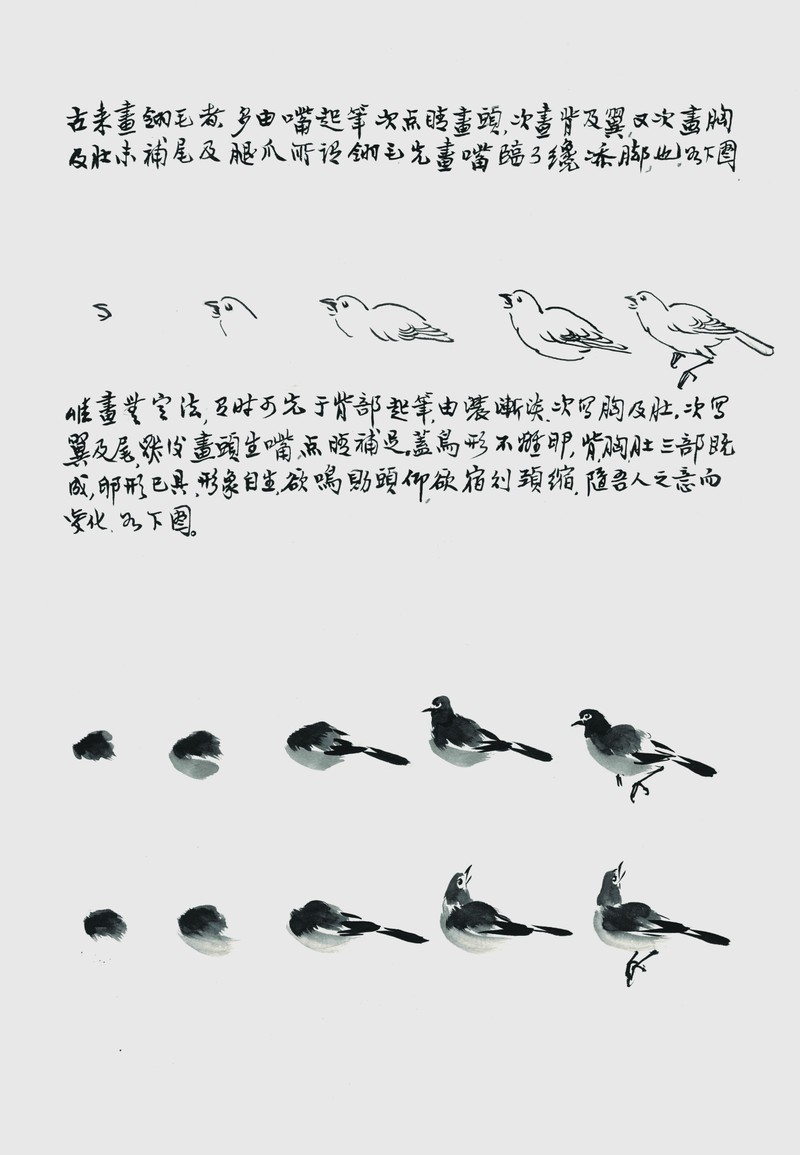 古来畫翎毛者,多由嘴起筆,次点睛畫頭,次畫背及翼,又次畫胸
及肚,末補尾及腿爪,所谓翎毛先畫嘴,臨了纔添脚也,如下图
惟畫無定法,及时可先于背部起筆,由濃漸淡,次写胸及肚,次写
翼及尾,然後畫頭生嘴,点睛補足。蓋鳥形不離卵,背胸肚三部既
成,卵形已具,形象自生,欲鳴則頭仰,欲宿则頭縮,隨吾人之意而
变化,如下图。